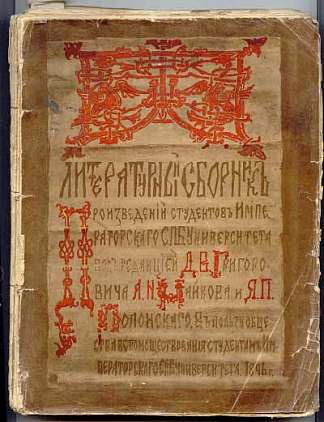 ЛИТЕРАТУРНЫЙ СБОРНИКЪ
ПРОИЗВЕДЕНІЙ СТУДЕНТОВЪ ИМПЕ
РАТОРСКАГО СПБ УНИВЕРСИТЕТА
ПОДЪ РЕДАКЦІЕЙ Д.В. ГРИГОРО
ВИЧА А.Н. МАЙКОВА И Я.П.
ПОЛОНСКАГО. ВЪ ПОЛЬЗУ ОБЩЕ
СТВА ВСПОМОЩЕСТВОВАНІЯ СТУДЕНТАМЪ ИМ
ПЕРАТОРСКАГО СПБ УНИВЕРСИТЕТА